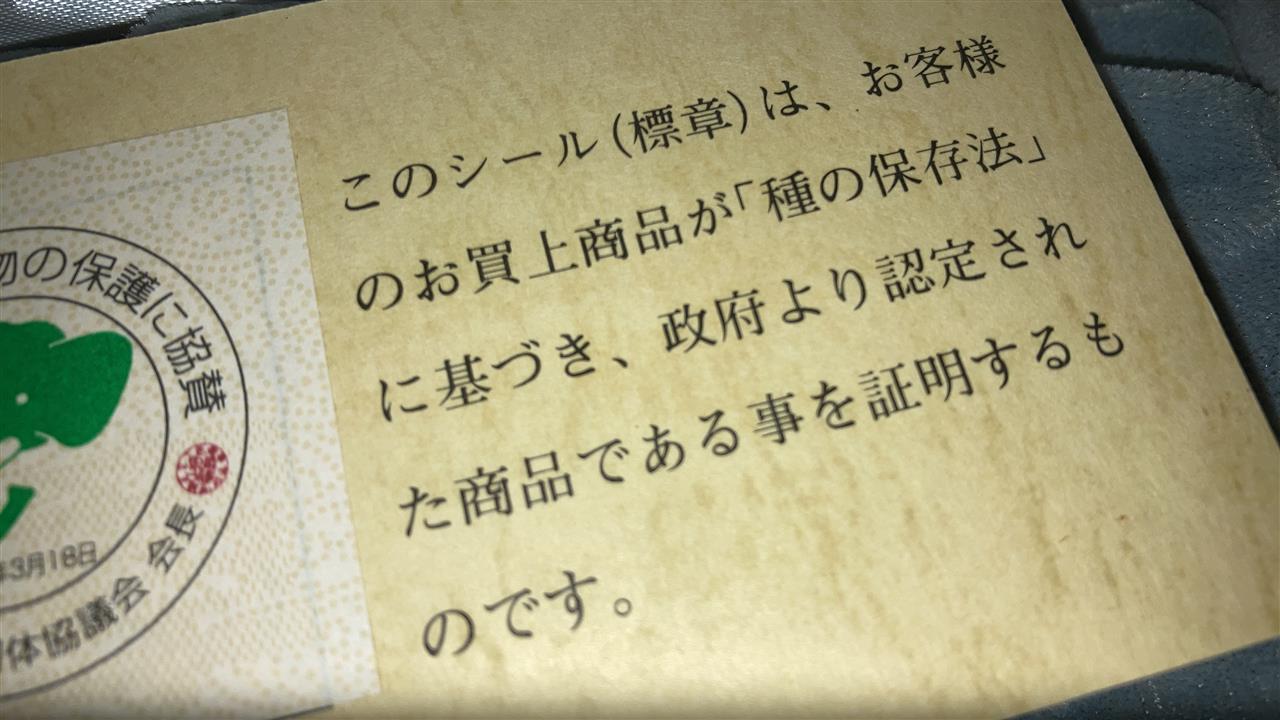 このシール(標章)は、お客様
のお買上商品が「種の保存法」
に基づき、政府より認定され
た商品である事を証明するも
のです。
物の保護に協賛
年3月18日
体協議会 会長